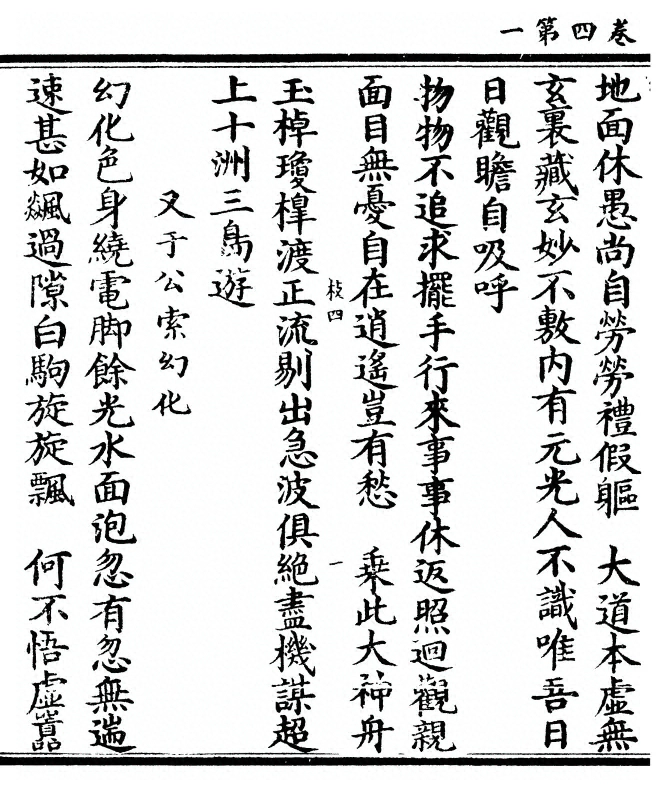 卷四第一
地面休愚尚自勞勞禮假軀　大道本虛無
玄裏藏玄妙不敷内有元光人不識唯吾日
日觀瞻自吸呼
物物不追求擺手行來事事休返照迴觀親
面目無憂自在逍遙豈有愁　乘此大神舟
玉棹瓊榫渡正流剔出急波俱絕盡機謀超
上十洲三島遊
又于公索幻化
幻化色身繞電脚餘光水面泡忽有忽無遄
速甚如飆過隙白駒旋旋飄　何不悟虛囂
枝四
一